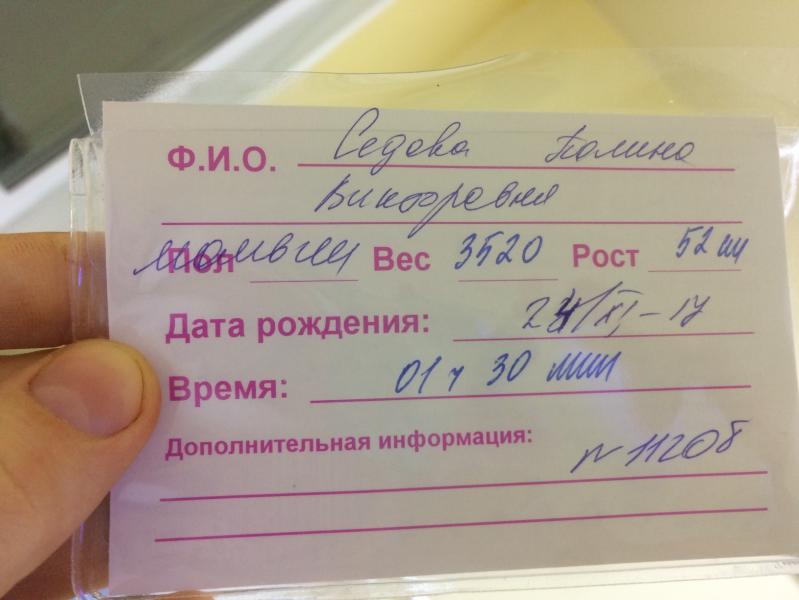 Ф.И.О. Седова Полина
Викторовна
Пол мальчик Вес 3520 Рост 52 см
Дата рождения: 24/XI-17
Время: 01 ч 30 мин
Дополнительная информация:
N 1120б